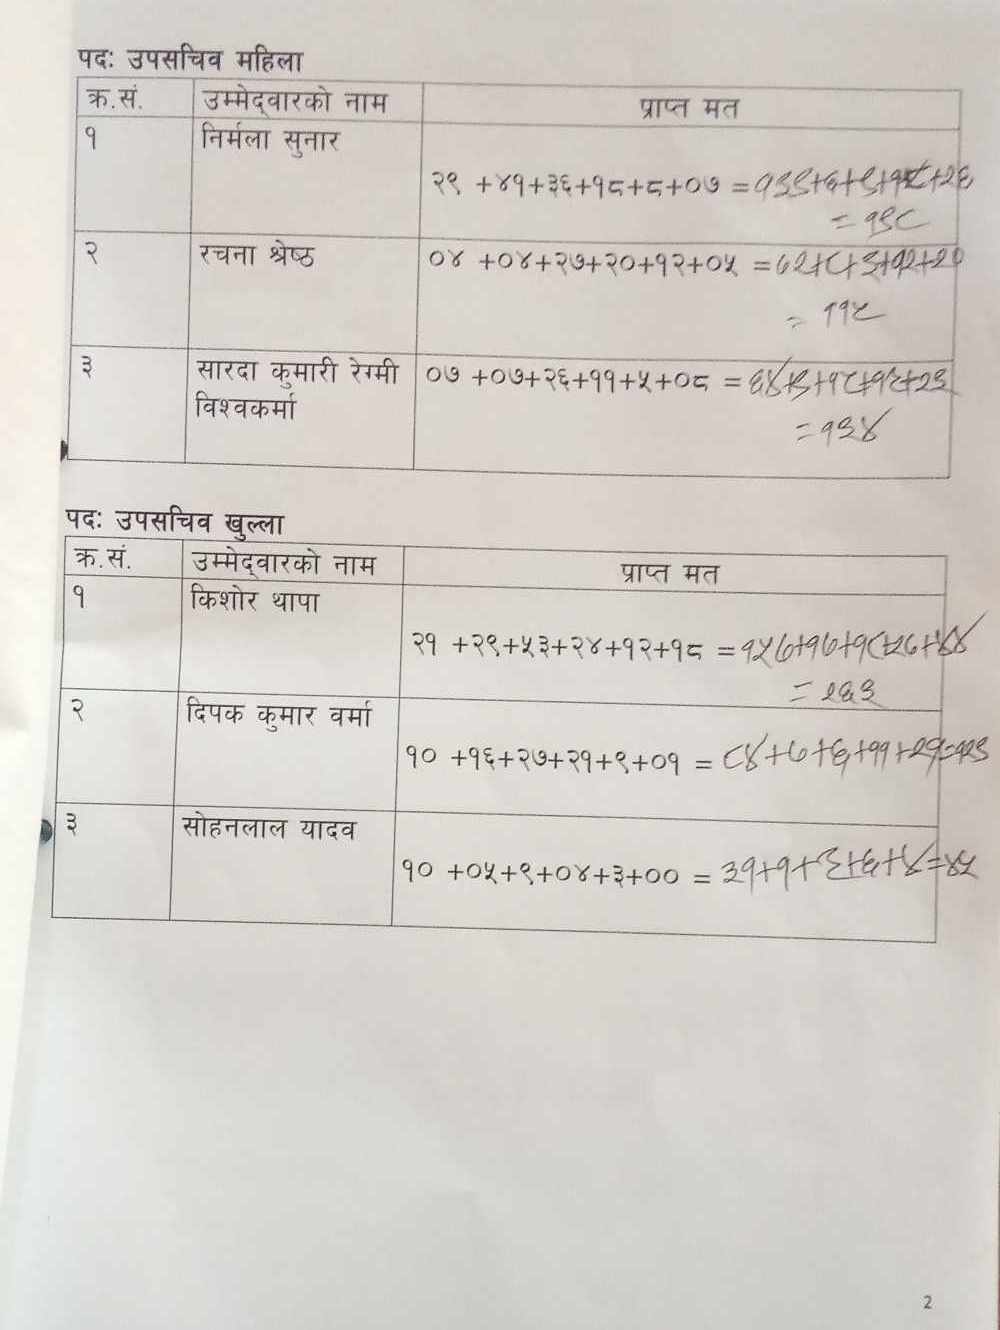 पद: उपसचिव महिला
क्र.सं. उम्मेद्वारको नाम प्राप्त मत
१ निर्मला सुनार
२९ +४१+३६+१८+८+०७ =
२ रचना श्रेष्ठ ०४ +०४+२७+२०+१२+०५ =
= ११५
३ सारदा कुमारी रेग्मी ०७ +०७+२६+११+५+०८ =
विश्वकर्मा = १३४
पद: उपसचिव खुल्ला
क्र.सं. उम्मेद्वारको नाम प्राप्त मत
१ किशोर थापा
२१ +२९+५३+२४+१२+१८ =
= २६३
२ दिपक कुमार वर्मा
१० +१६+२७+२१+९+०१ = ८४+७+६+११+२१=१२९
३ सोहनलाल यादव
१० +०५+९+०४+३+०० =
2